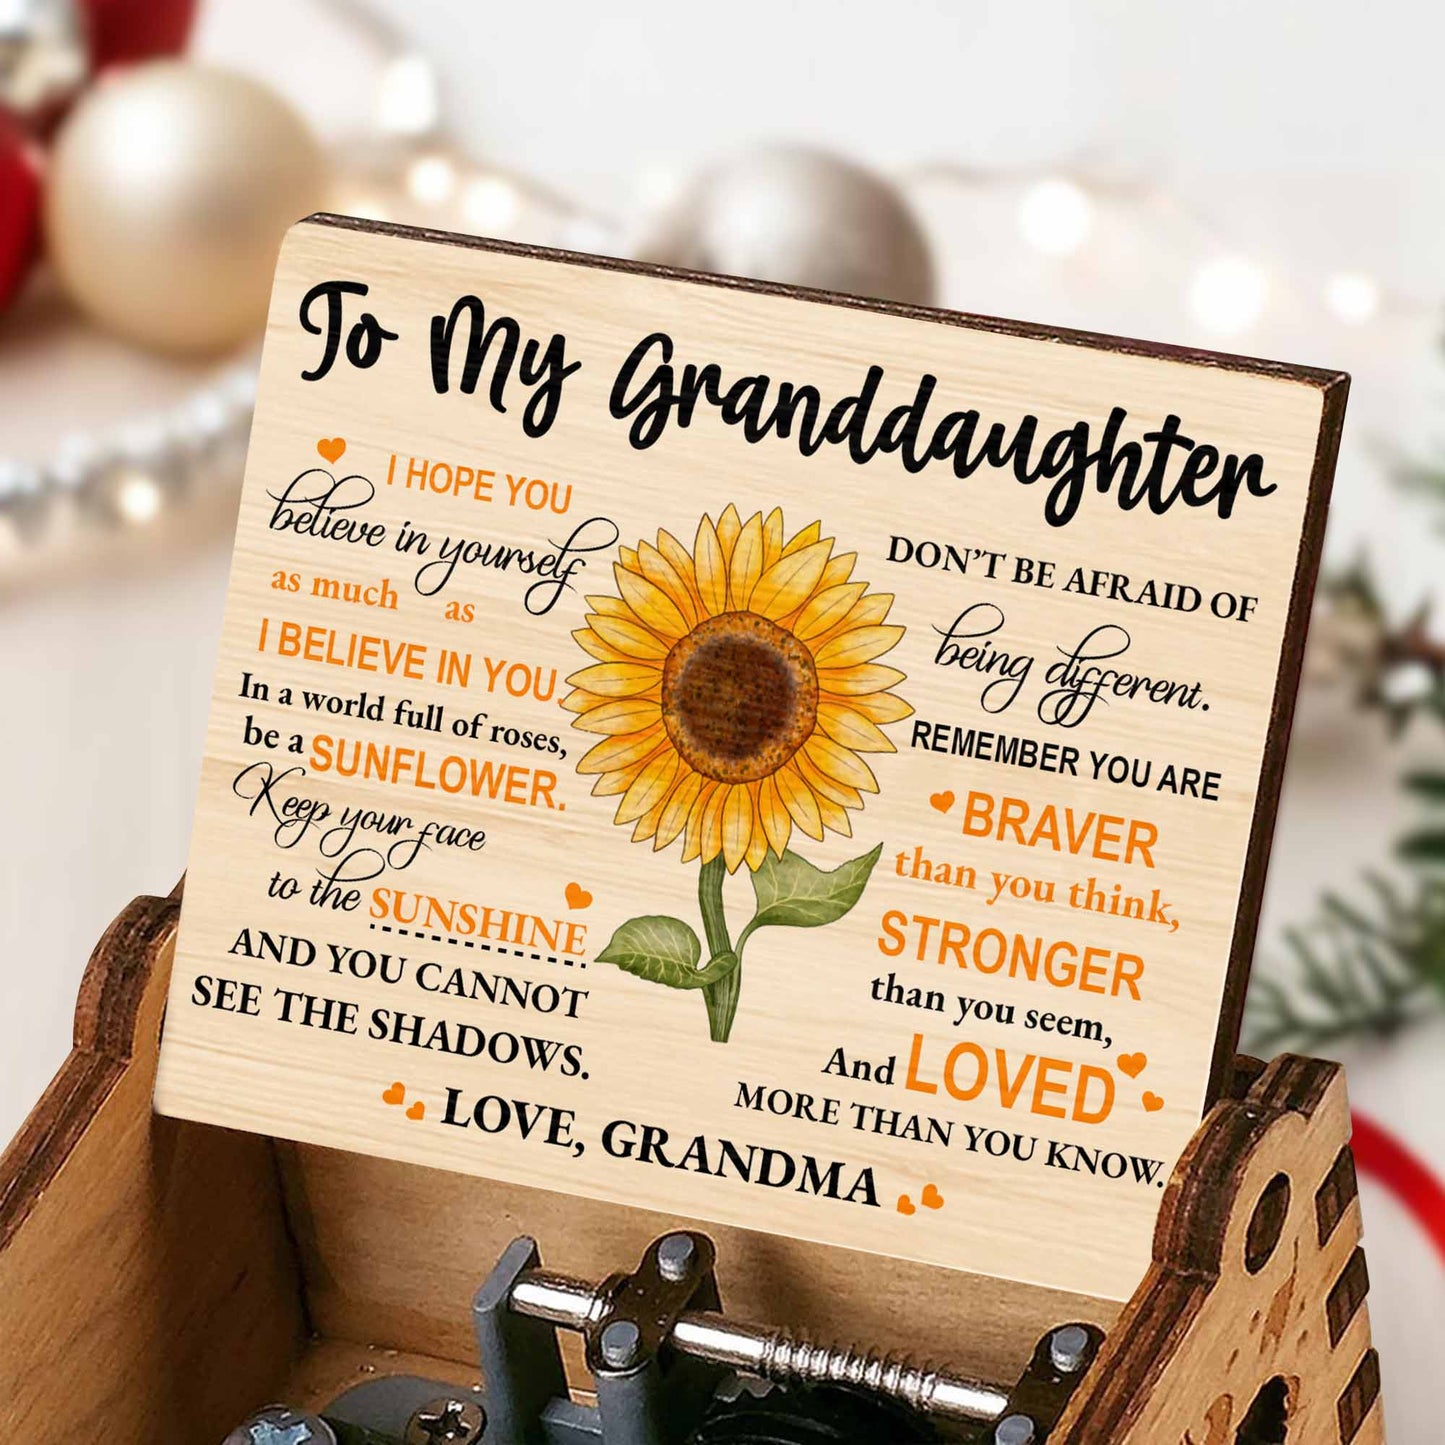 To My Granddaughter
I HOPE YOU
believe in yourself
as much as
I BELIEVE IN YOU.
In a world full of roses,
be a SUNFLOWER.
Keep your face
to the SUNSHINE
AND YOU CANNOT
SEE THE SHADOWS.
DON'T BE AFRAID OF
being different.
REMEMBER YOU ARE
BRAVER
than you think,
STRONGER
than you seem,
And LOVED
MORE THAN YOU KNOW.
LOVE, GRANDMA